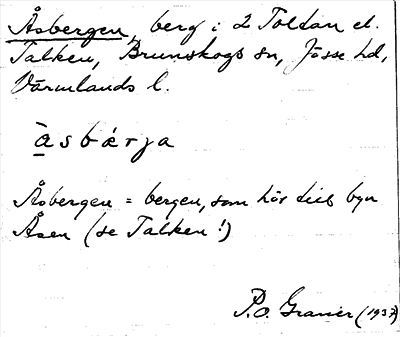 Åsbergen, berg i 2 Toltan el.
Talken, Brunskogs sn, Jösse hd,
Värmlands l.
åsbærja
Åsbergen = bergen, som hör till byn
Åsen (se Talken!)
P.O. Granér (1937)